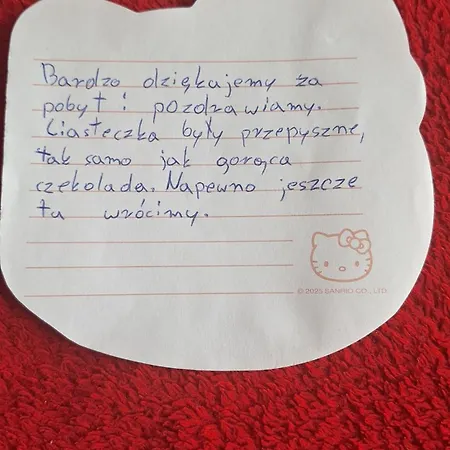 Bardzo dziękujemy za
pobyt i pozdrawiamy.
Ciasteczka były przepyszne,
tak samo jak gorąca
czekolada. Napewno jeszcze
tu wrócimy.
© 2025 SANRIO CO., LTD.